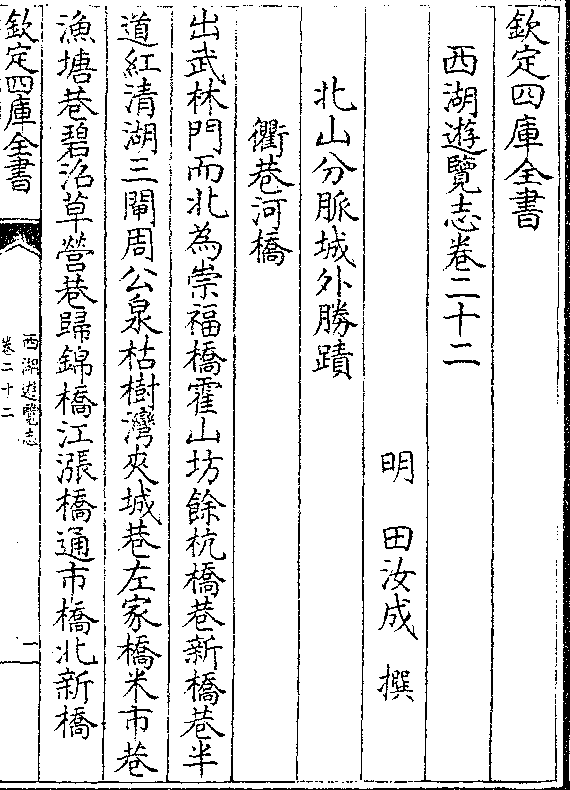 欽定四庫全書
西湖遊覽志卷二十二
明 田汝成 撰
北山分脈城外勝蹟
衢巷河橋
出武林門而北為崇福橋霍山坊餘杭橋巷新橋巷半
道紅清湖三閘周公泉枯樹灣夾城巷左家橋米市巷
漁塘巷碧沼草營巷歸錦橋江漲橋通市橋北新橋
欽定四庫全書
西湖遊覽志
卷二十二